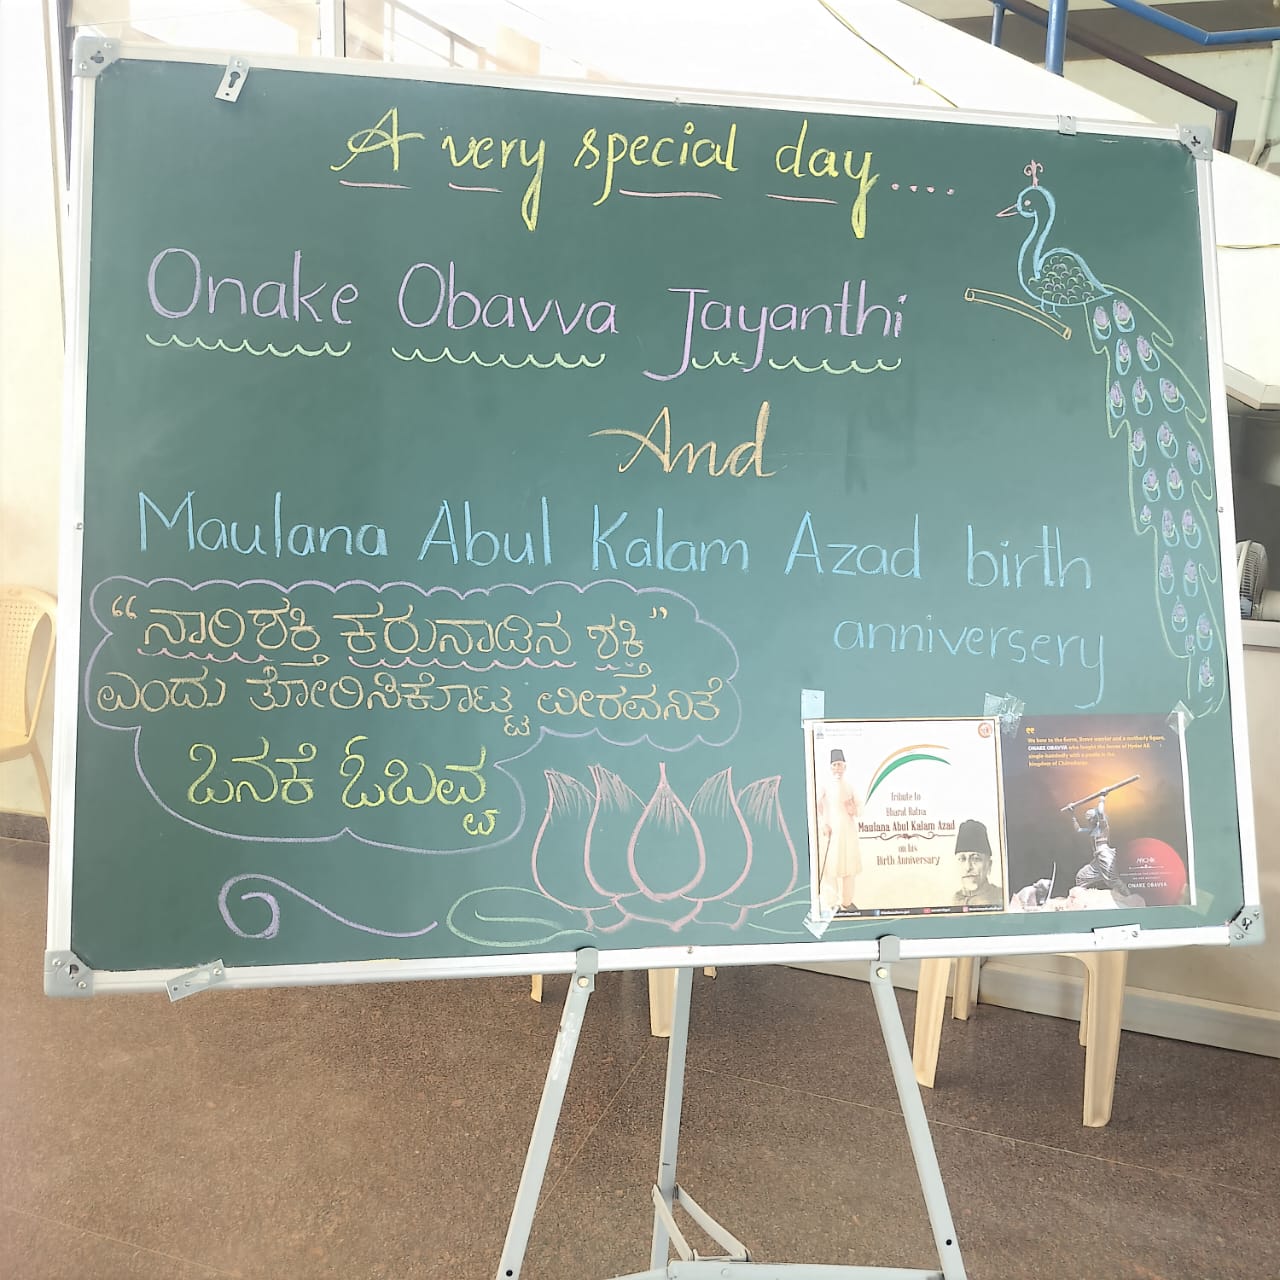 A very special day....
Onake Obavva Jayanthi
And
Maulana Abul Kalam Azad birth
anniversery
“ನಾರಿಶಕ್ತಿ ಕರುನಾಡಿನ ಶಕ್ತಿ”
ಎಂದು ತೋರಿಸಿಕೊಟ್ಟ ವೀರವನಿತೆ
ಒನಕೆ ಓಬವ್ವ
Tribute to
Bharat Ratna
Maulana Abul Kalam Azad
on his
Birth Anniversary
We bow to the fierce, brave warrior and a motherly figure,
ONAKE OBAVVA who fought the forces of Hyder Ali
single-handedly with a pestle in the
kingdom of Chitradurga.
ONAKE OBAVVA